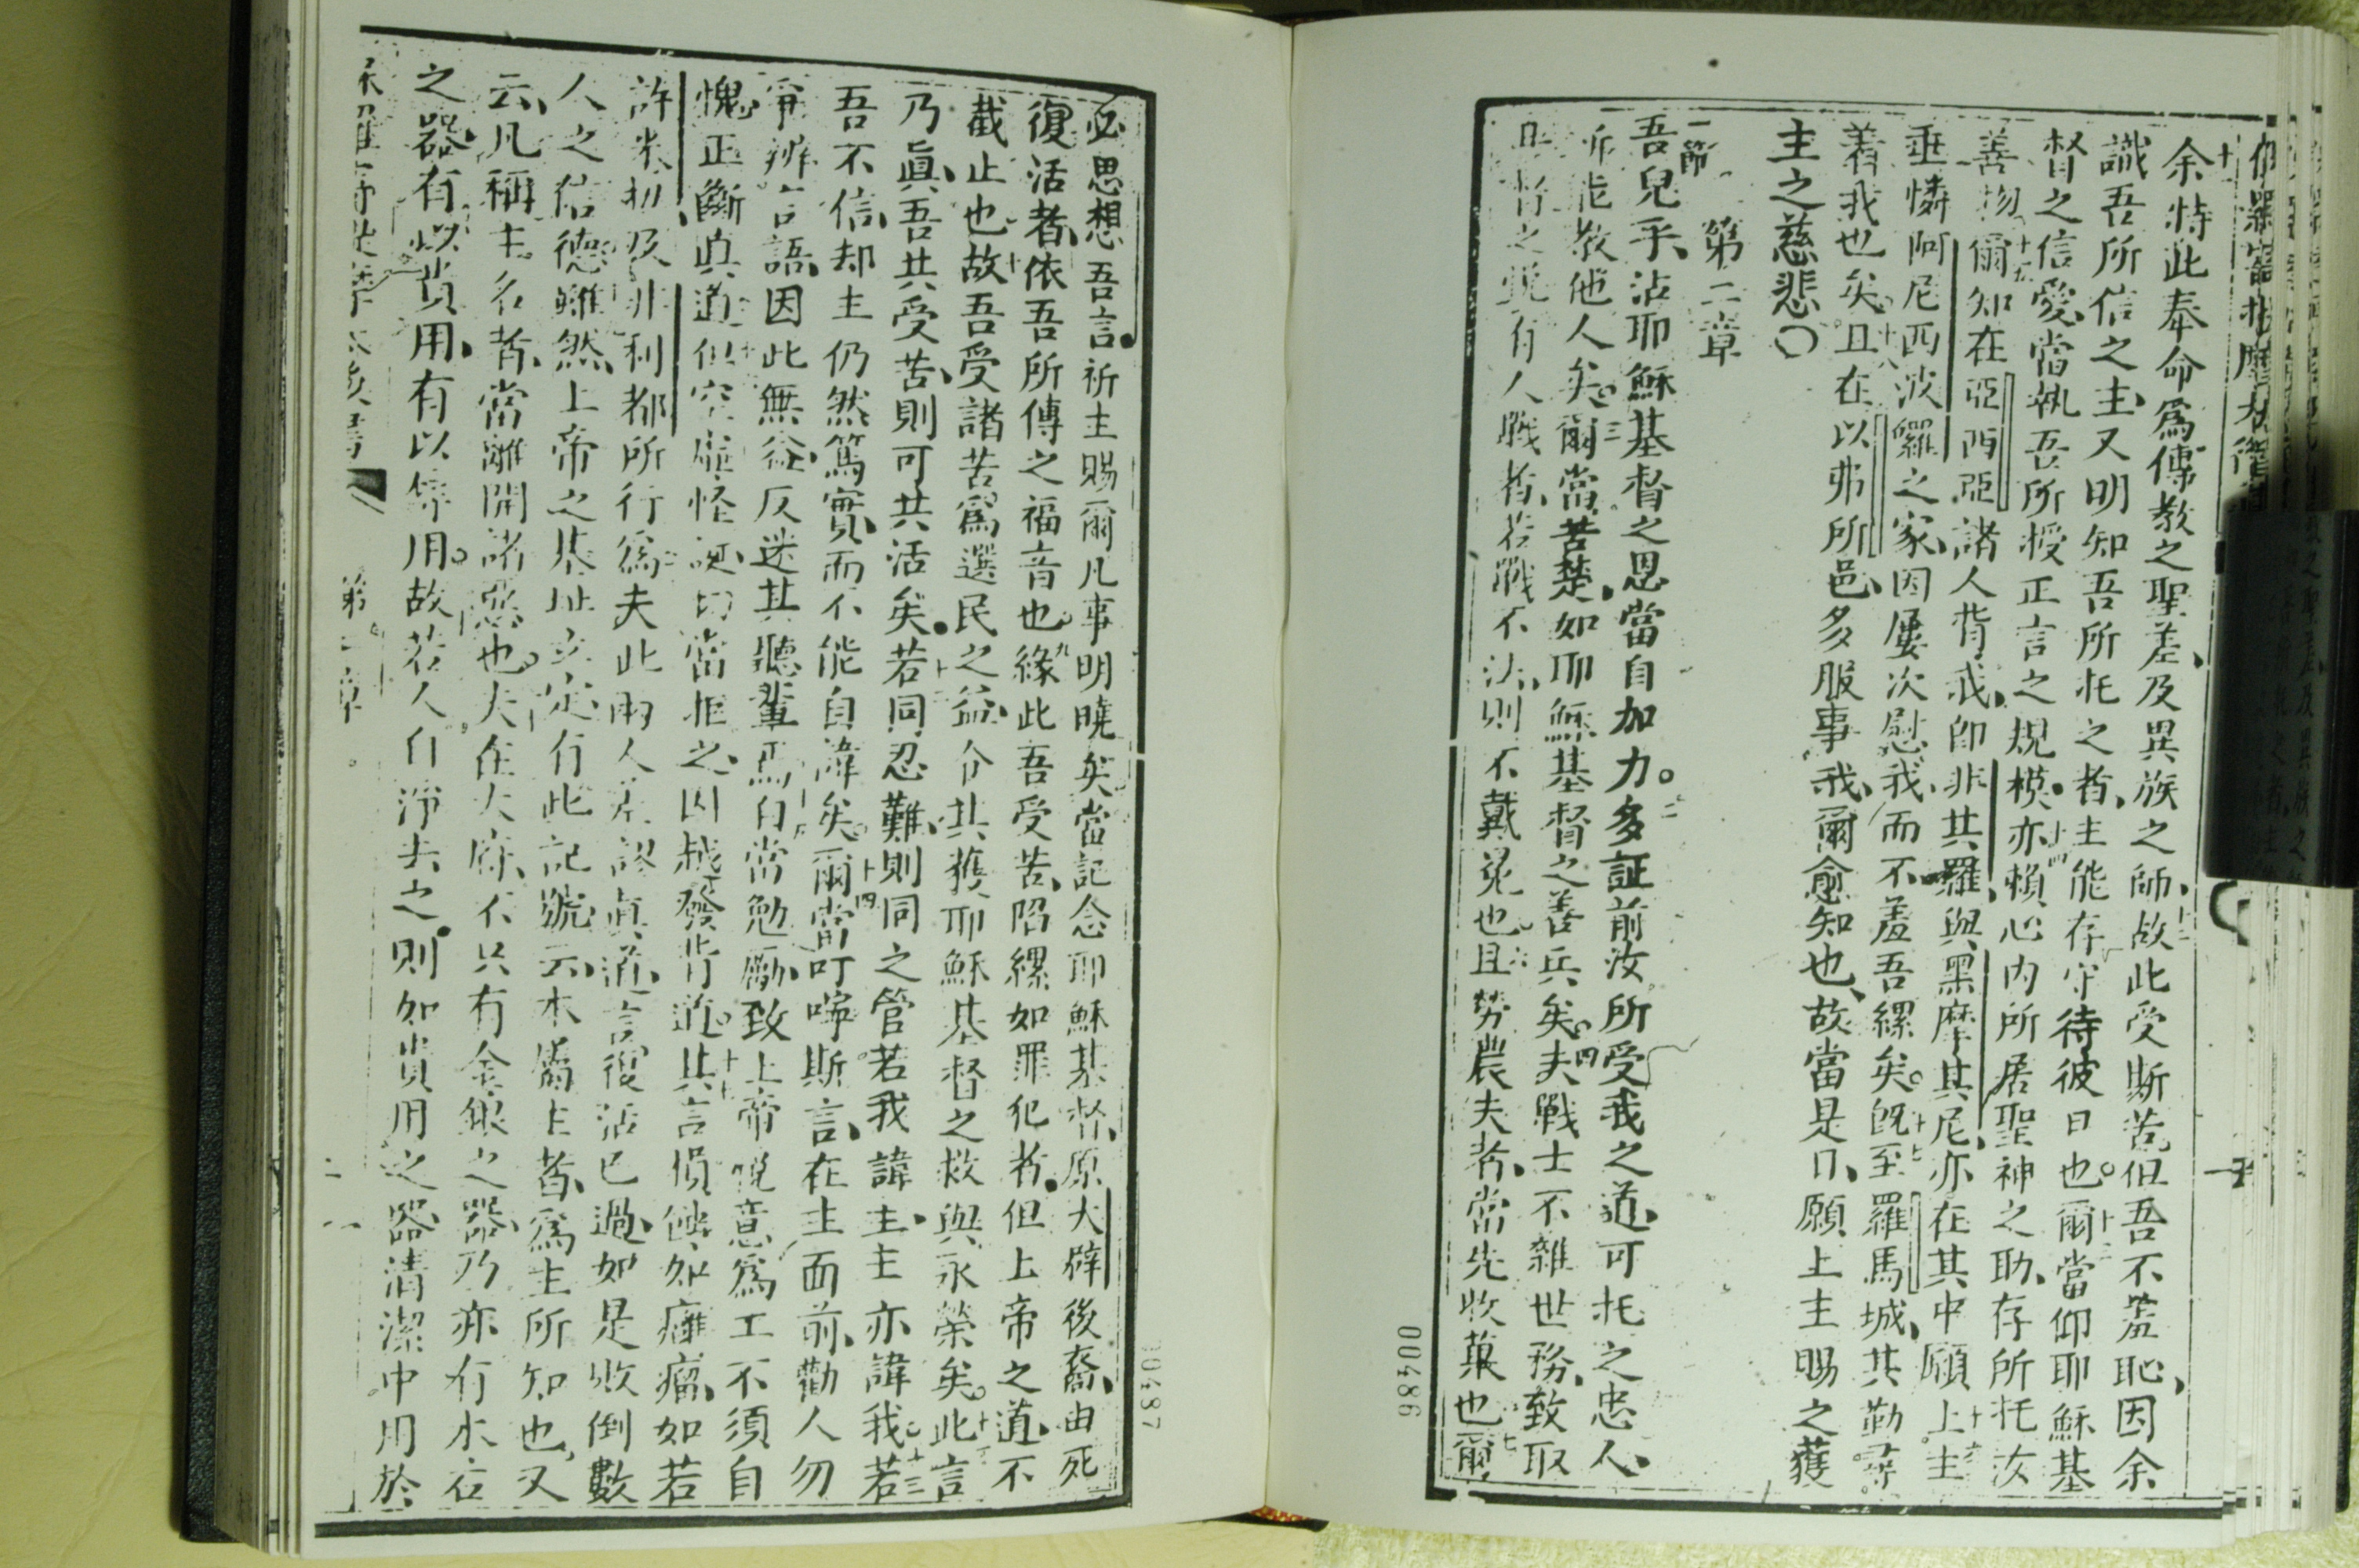 余恃此奉命爲傳教之聖差、及異族之師、十二故此受斯苦、但吾不羞恥、因余
識吾所信之主、又明知吾所托之者、主能存守待彼日也。十三爾當仰耶穌基
督之信愛、當執吾所授正言之規模、十四亦賴心內所居聖神之助、存所托汝
善物。十五爾知在亞西亞諸人背我、卽非其羅與黑摩其尼、亦在其中、十六願上主
垂憐阿尼西波羅之家、因屢次慰我、而不羞吾縲矣。十七旣至羅馬城、其勤尋
着我也矣。十八且在以弗所邑、多服事我、爾愈知也、故當是日、願上主賜之獲
主之慈悲〇
第二章
一節
吾兒乎、沾耶穌基督之恩、當自加力。二多証前汝所受我之道、可托之忠人、
所能教他人矣。三爾當苦楚、如耶穌基督之善兵矣。四夫戰士不雜世務、致取
之悅、有人戰者、若戰不法、則不戴冕也。六且勞農夫者、當先收菓也。七爾
00486
必思想吾言、祈主賜爾凡事明曉矣。當記念耶穌基督、原大辟後裔、由死
復活者、依吾所傳之福音也。九緣此吾受苦、陷縲如罪犯者、但上帝之道、不
截止也。十故吾受諸苦、爲選民之益、令其獲耶穌基督之救、與永榮矣。十一此言
乃眞、吾共受苦、則可共活矣。十二若同忍難、則同之管、若我諱主、主亦諱我、十三若
吾不信、却主仍然篤實、而不能自諱矣。十四爾當叮嚀斯言、在主面前、勸人勿
爭辨言語、因此無益、反迷其聽輩焉。自當勉勵、致上帝悅意、爲工不須自
愧、正斷眞道。但空虛怪誕、切當拒之、因越發背道。十七其言損蝕如癰瘤、如若
許米初及非利都所行爲、夫此兩人差謬眞道、言復活已過、如是敗倒數
人之信德。雖然、上帝之基址立定、有此記號云、本屬主者、爲主所知也、又
云、凡稱主名者、當離開諸惡也。夫在大府、不只有金銀之器、乃亦有木石
之器、有以貴用、有以辱用。故若人自淨去之、則如貴用之器、清潔中用於
0487